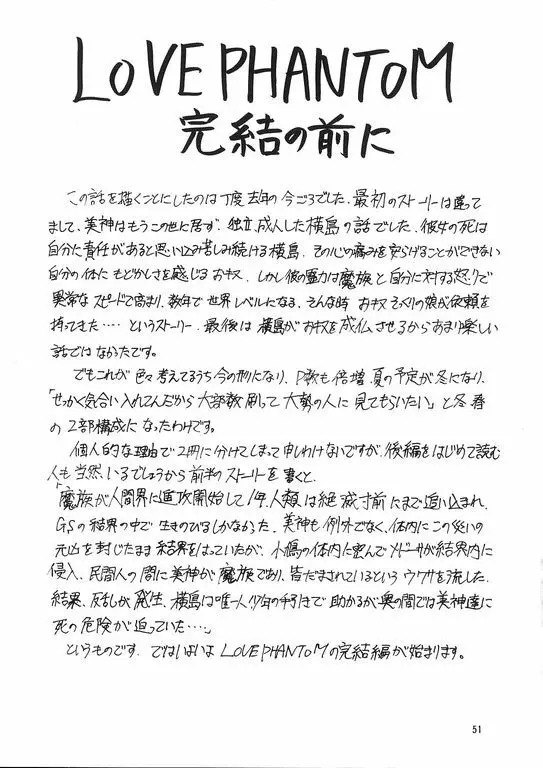 LOVE PHANTOM
完結の前に
この話を描くことにしたのは丁度去年の今ごろでした。最初のストーリーは違って
まして、美神はもうこの世に居ず、独立、成人した横島の話でした。彼女の死は
自分に責任があると思い込み苦しみ続ける横島、その心の痛みを安らげることができない
自分の体にもどかしさを感じるおキヌ、しかし彼の霊力は魔族と自分に対する怒りで
異常なスピードで高まり、数年で世界レベルになる、そんな時おキヌそっくりの娘が依頼を
持ってきた‥‥というストーリー、最後は横島がおキヌを成仏させるからあまり楽しい
話ではなかったです。
でもこれが色々考えてるうち今の形になり、P数も倍増、夏の予定が冬になり、
「せっかく気合い入れてんだから大部数刷して大勢の人に見てもらいたい」と冬春
の2部構成になったわけです。
個人的な理由で2冊に分けてしまって申しわけないですが、後編をはじめて読む
人も当然いるでしょうから前半のストーリーを書くと、
「魔族が人間界に進攻開始して1年、人類は絶滅寸前にまで追い込まれ、
GSの結界の中で生きのびるしかなかった。美神も例外でなく、体内にこの災いの
元凶を封じたまま結界をはっていたが、小鳩の体内に潜んでメドーサが結界内に
侵入、民間人の間に美神が魔族であり、皆だまされているというウワサを流した。
結果、反乱が発生、横島は唯一人少年の手引きで助かるが奥の間では美神達に
死の危険が迫っていた‥‥」
というものです。ではいよいよLOVE PHANTOMの完結編が始まります。
51